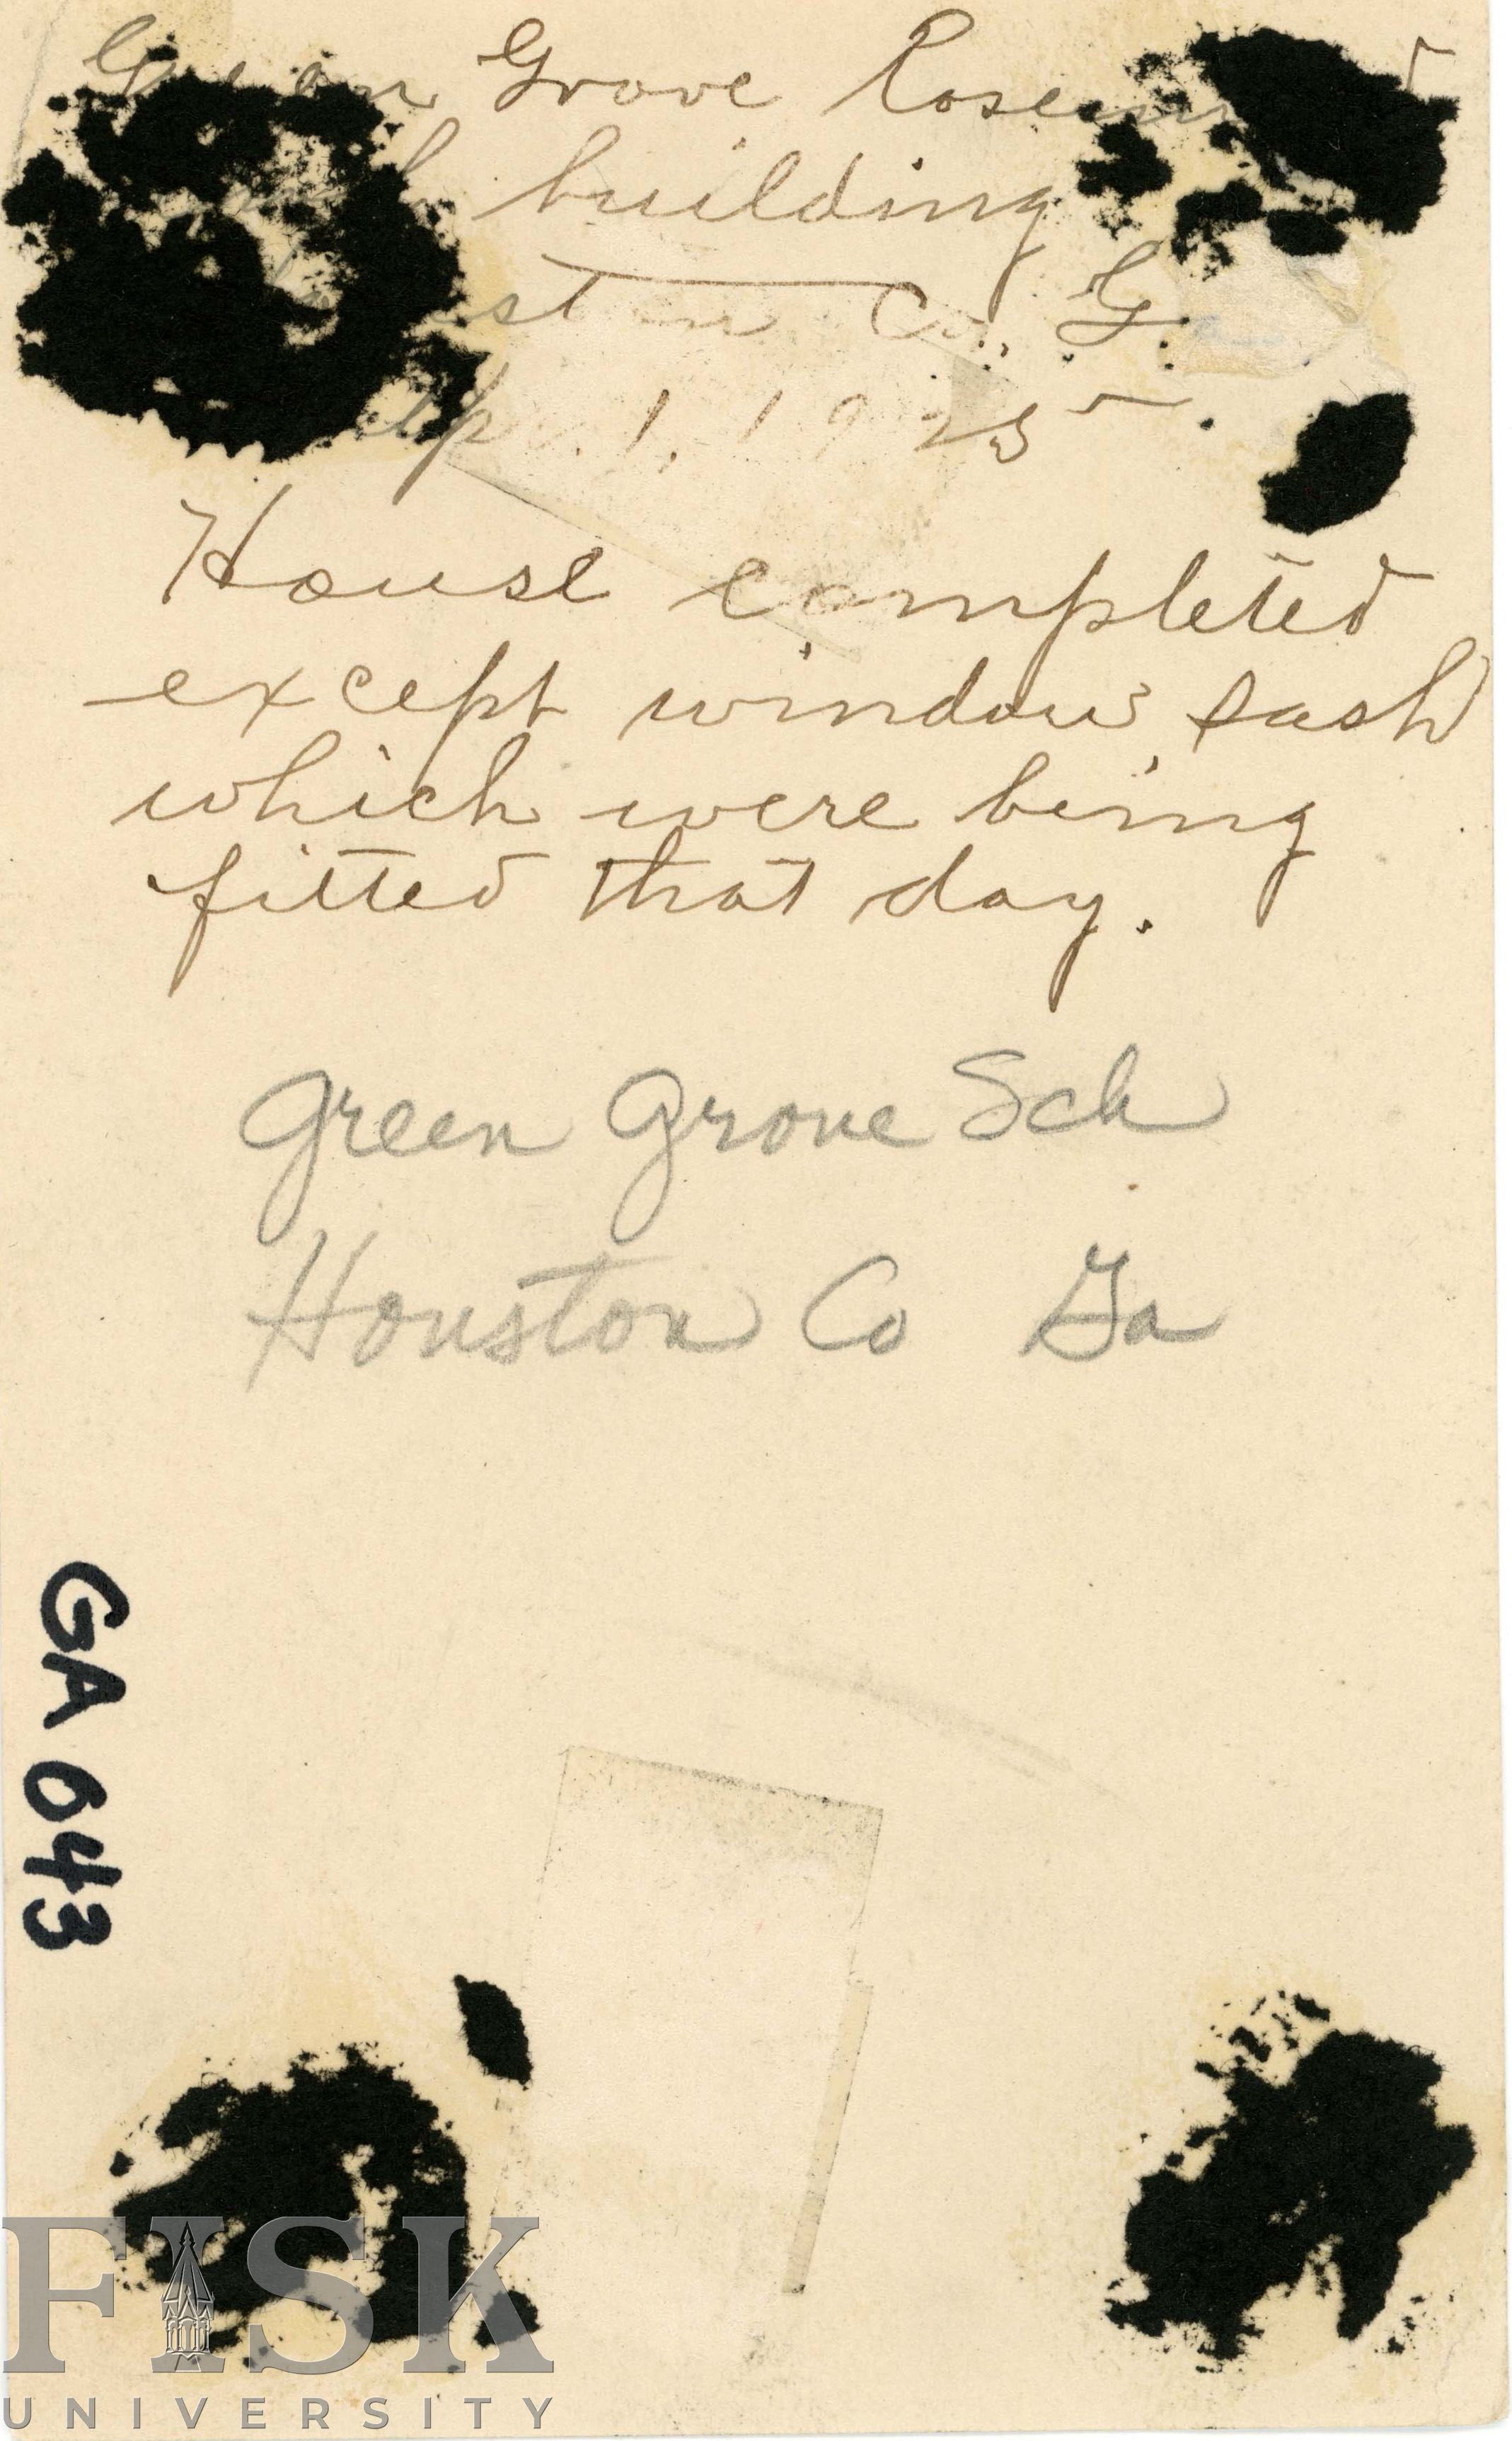 Green Grove
building
Co. G
Apr. 1, 1925.
House completed
except window sash
which were being
fitted that day.
Green Grove Sch
Houston Co Ga
GA 643
FISK
UNIVERSITY